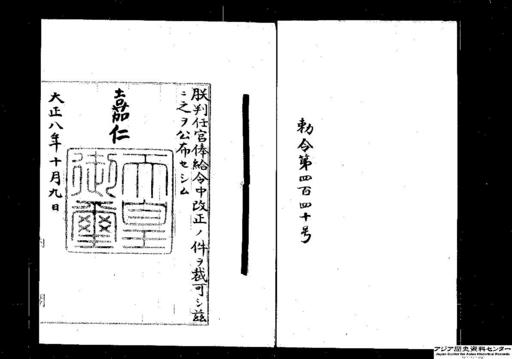 勅令第四百四十号
朕判任官俸給令中改正ノ件ヲ裁可シ茲
ニ之ヲ公布セシム
嘉仁
天皇
御璽
大正八年十月九日
アジア歴史資料センター
Japan Center for Asian Historical Records